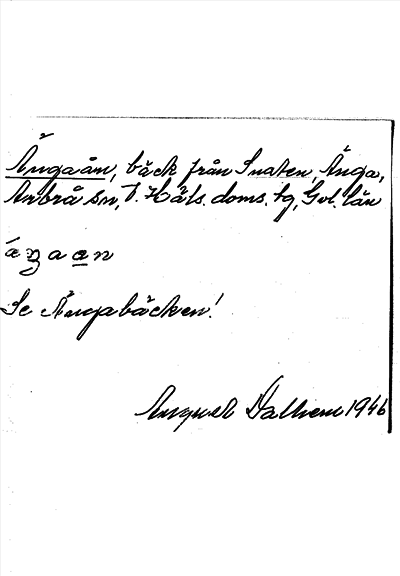 Ängaån, bäck från Snaten, Änga,
Arbrå sn, V. Häls. doms. tg, Gvl. län
Se Ängabäcken!
August Dalhem 1946